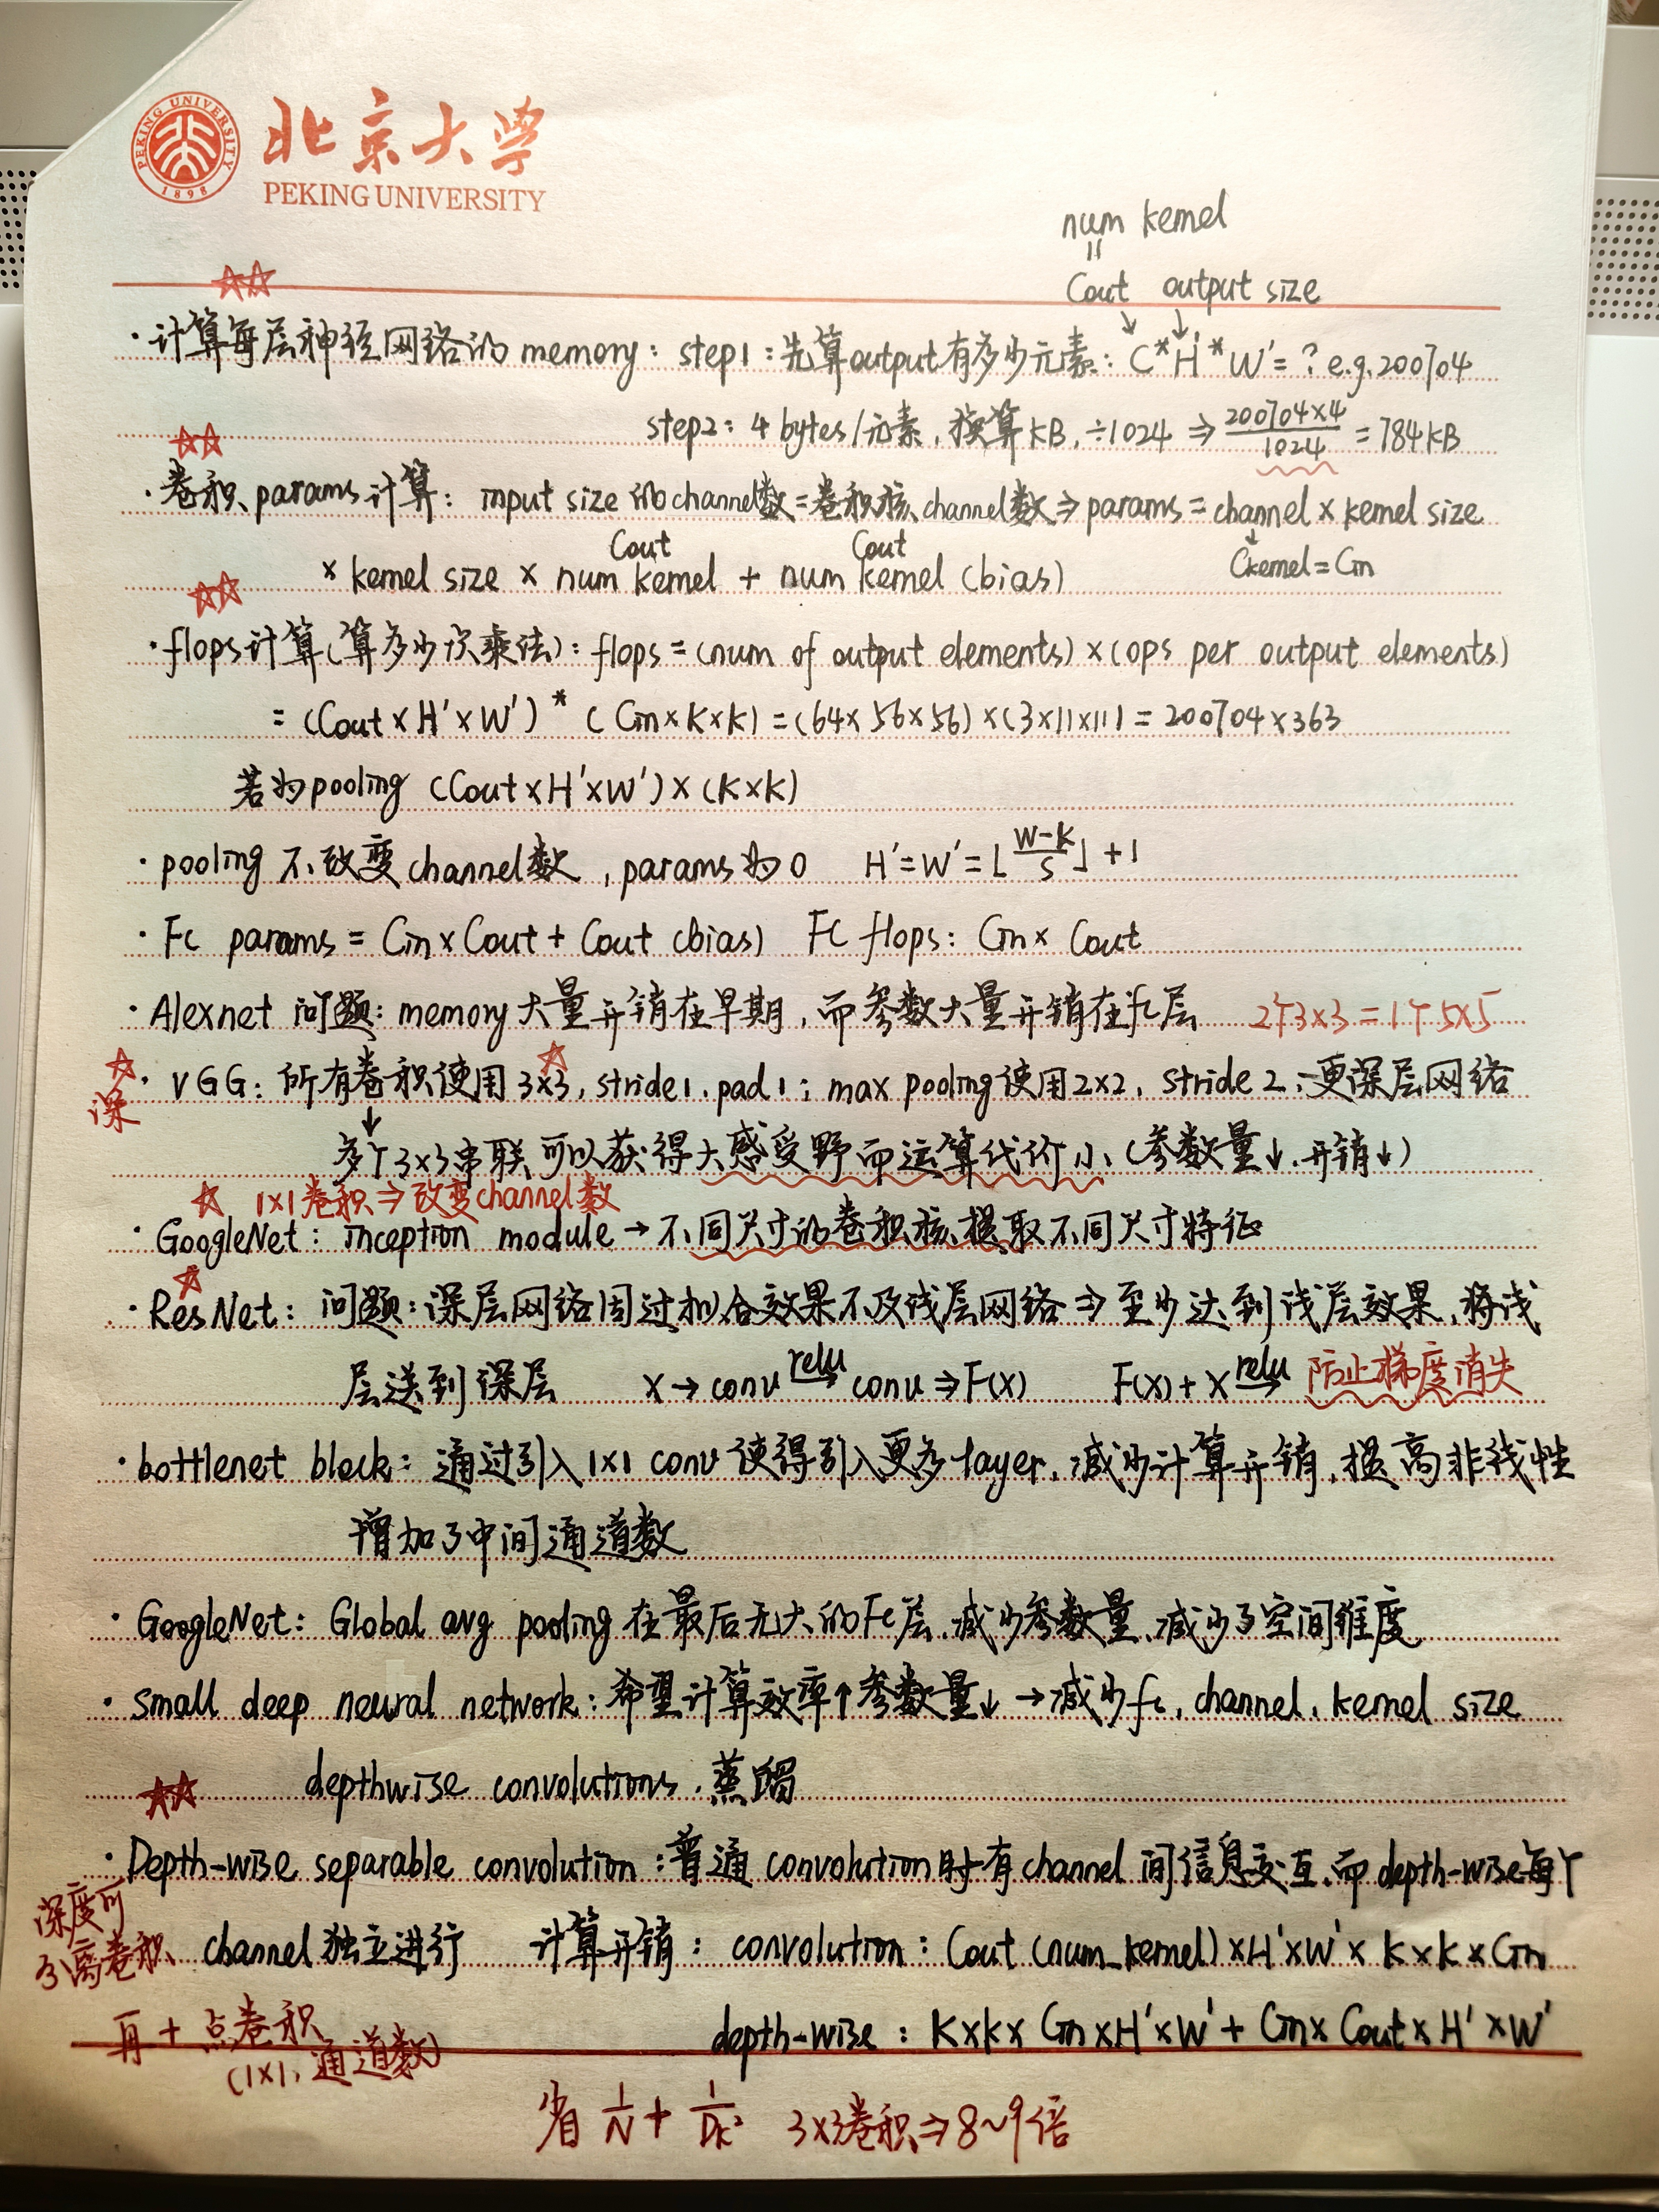 PEKING UNIVERSITY
1898
北京大学
PEKING UNIVERSITY
num kernel
=
Cout output size
☆☆
· 计算每层神经网络的 memory: step1: 先算output有多少元素: C*H'*W'=? e.g. 200704
step2: 4 bytes/元素, 换算KB, ÷1024 ⇒ 200704×4/1024 = 784KB
☆☆
· 卷积 params计算: input size 的channel数=卷积核channel数⇒params=channel×kernel size
Ckernel=Cin
Cout Cout
× kernel size × num kernel + num kernel (bias)
☆☆
· flops计算(算多少次乘法): flops=(num of output elements)×(ops per output elements)
= (Cout×H'×W') * (Cin×K×K) =(64×56×56)×(3×11×11) = 200704×363
若为pooling (Cout×H'×W')×(K×K)
· pooling 不改变channel数, params为0 H'=W'=⌊(W-K)/S⌋+1
· Fc params = Cin×Cout + Cout (bias) FC flops: Cin× Cout
· Alexnet 问题: memory大量开销在早期, 而参数大量开销在fc层 2个3×3=1个5×5
☆ 深
☆
· VGG: 所有卷积使用3×3, stride1, pad1; max pooling使用2×2, stride 2; 更深层网络
↓
多个3×3串联可以获得大感受野而运算代价小 (参数量↓, 开销↓)
☆ 1×1卷积⇒改变channel数
· GoogleNet: inception module → 不同尺寸的卷积核提取不同尺寸特征
☆
· ResNet: 问题: 深层网络因过拟合效果不及浅层网络 ⇒ 至少达到浅层效果, 将浅
层送到深层 X → conv relu→ conv ⇒ F(X) F(X)+X relu→ 防止梯度消失
· bottlenet block: 通过引入1×1 conv 使得引入更多layer, 减少计算开销, 提高非线性
增加了中间通道数
· GoogleNet: Global avg pooling 在最后无大的Fc层, 减少参数量, 减少了空间维度
· small deep neural network: 希望计算效率↑参数量↓ → 减少fc, channel, kernel size
depthwise convolutions, 蒸馏
☆☆
· Depth-wise separable convolution: 普通 convolution时有channel 间信息交互, 而depth-wise每个
深度可
分离卷积
channel独立进行 计算开销: convolution: Cout (num_kernel)×H'×W'×K×K×Cin
再+点卷积
(1×1, 通道数)
depth-wise: K×K×Cin×H'×W'+Cin×Cout×H'×W'
省 1/N + 1/Dk² 3×3卷积⇒8~9倍